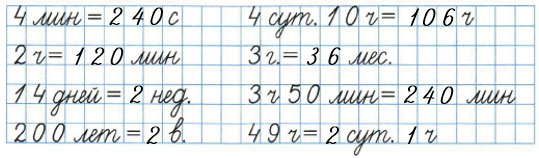 4 мин = 240 с
4 сут. 10 ч = 106 ч
2 ч = 120 мин
3 г. = 36 мес.
14 дней = 2 нед.
3 ч 50 мин = 240 мин
200 лет = 2 в.
49 ч = 2 сут. 1 ч